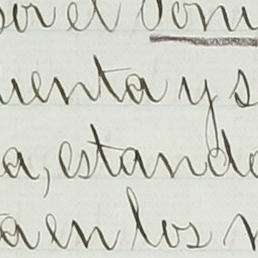 por el Dom
uenta y s
a, estando
a en los